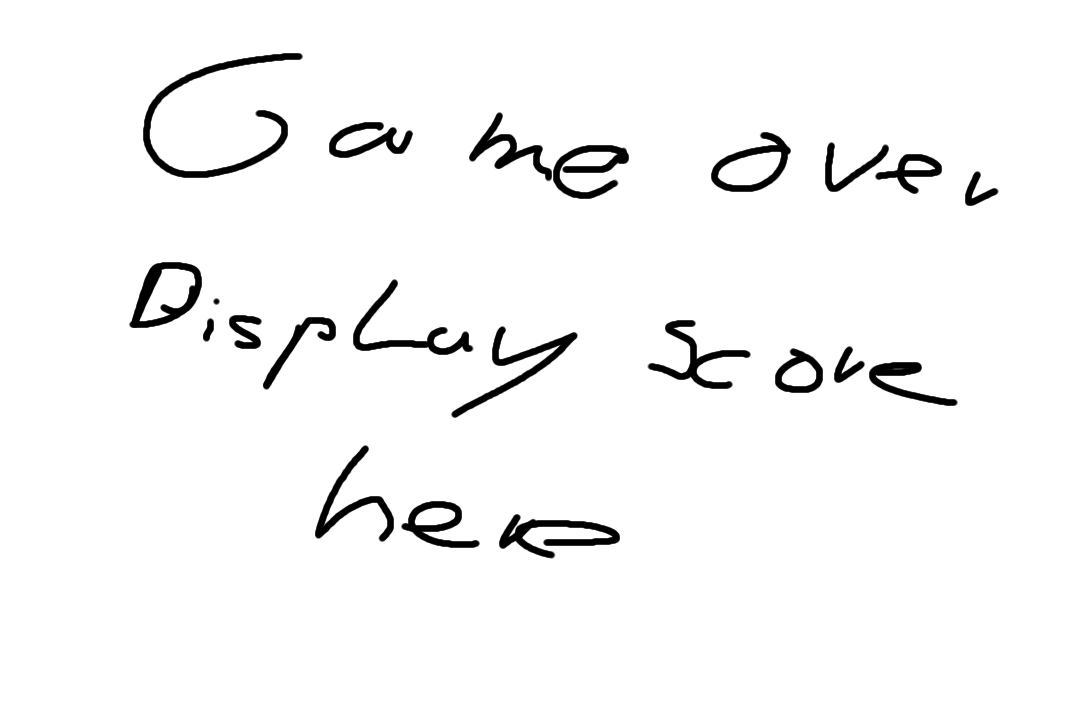 Game over
Display score
here